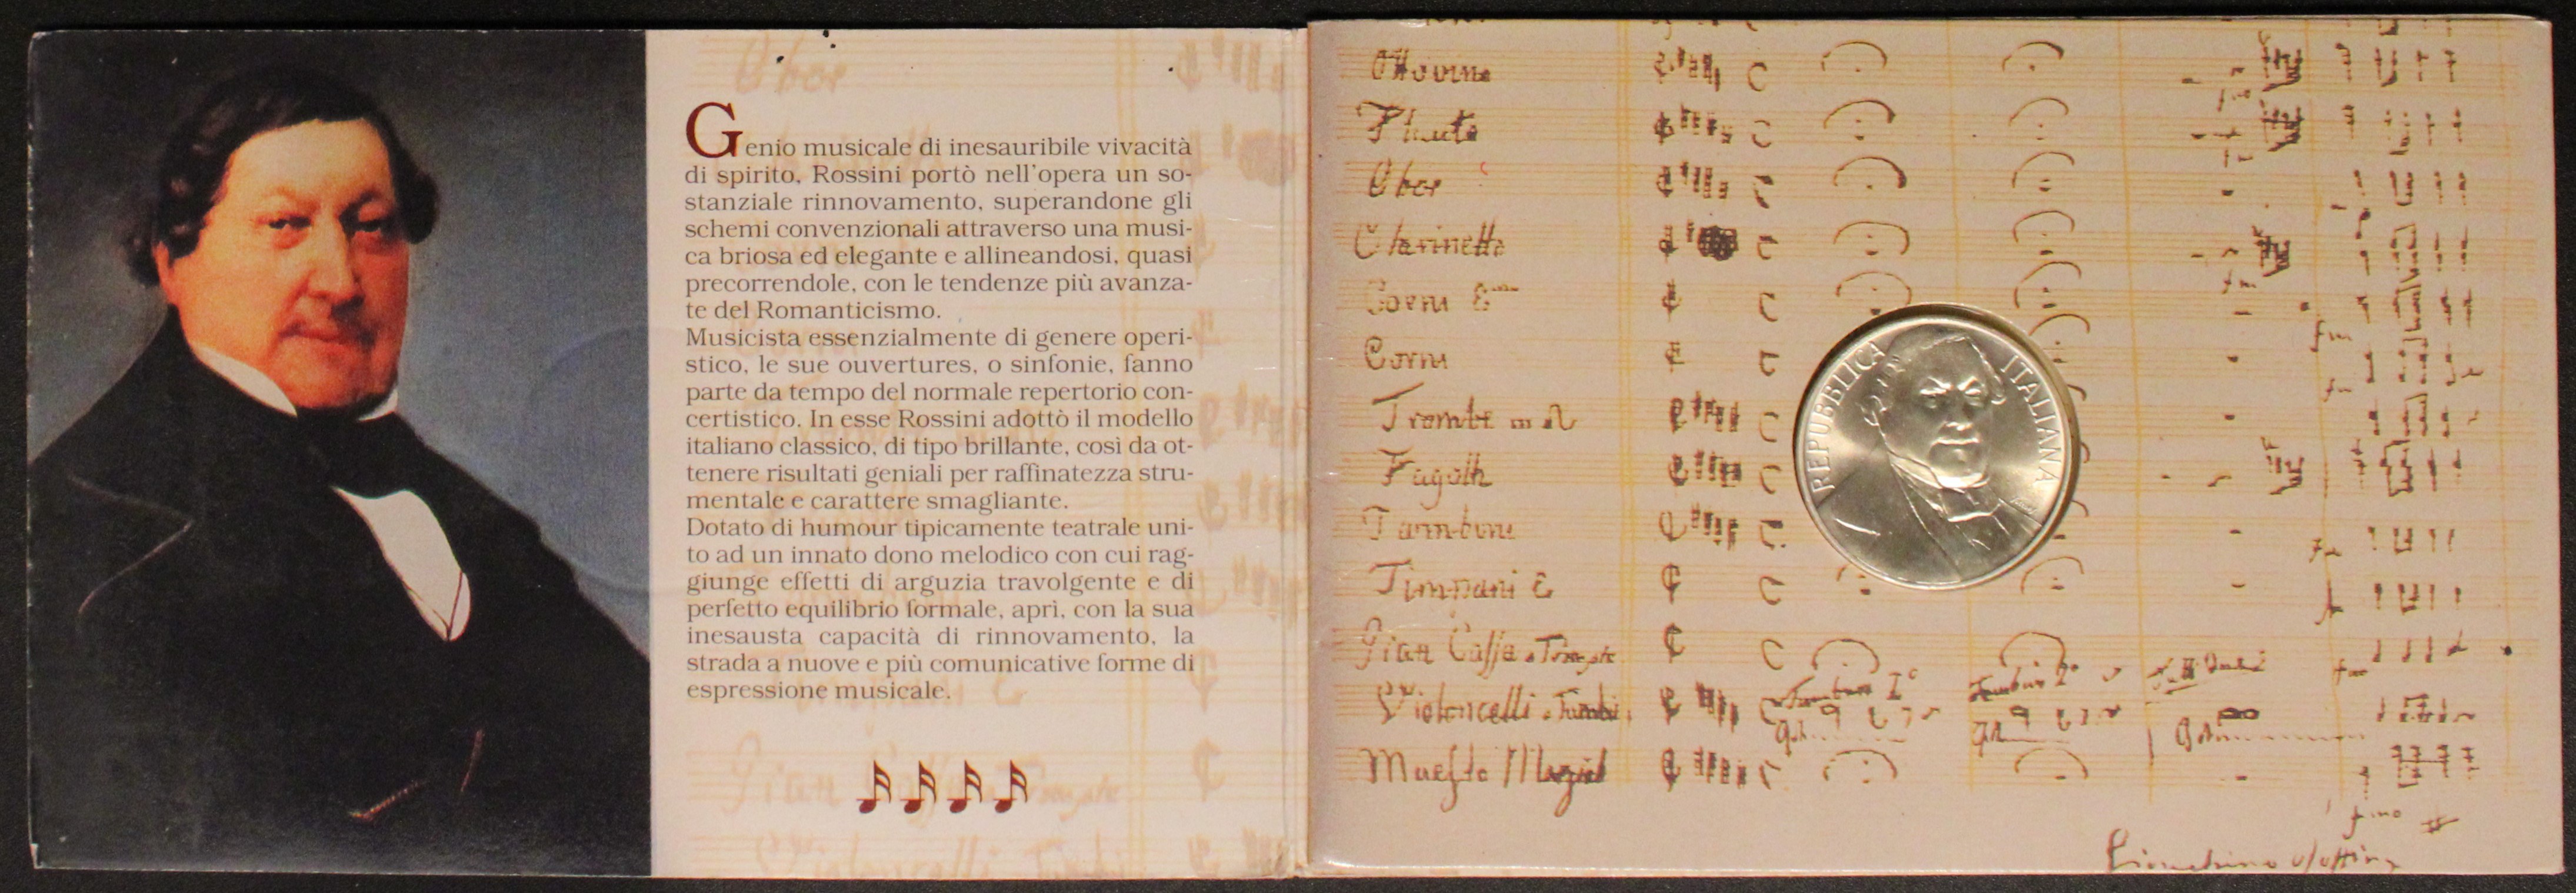 Genio musicale di inesauribile vivacità
di spirito, Rossini portò nell'opera un so-
stanziale rinnovamento, superandone gli
schemi convenzionali attraverso una musi-
ca briosa ed elegante e allineandosi, quasi
precorrendole, con le tendenze più avanza-
te del Romanticismo.
Musicista essenzialmente di genere operi-
stico, le sue ouvertures, o sinfonie, fanno
parte da tempo del normale repertorio con-
certistico. In esse Rossini adottò il modello
italiano classico, di tipo brillante, così da ot-
tenere risultati geniali per raffinatezza stru-
mentale e carattere smagliante.
Dotato di humour tipicamente teatrale uni-
to ad un innato dono melodico con cui rag-
giunge effetti di arguzia travolgente e di
perfetto equilibrio formale, aprì, con la sua
inesausta capacità di rinnovamento, la
strada a nuove e più comunicative forme di
espressione musicale.
Ottavino
Flauto
Oboe
Clarinetto
Corni
Corni
Trombe in
Fagotti
Tromboni
Timpani
Gran Cassa
Violoncelli
REPUBBLICA ITALIANA